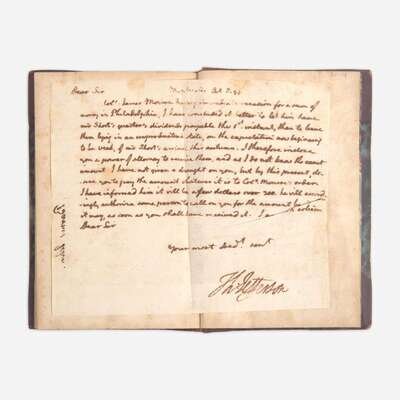 Dear Sir Monticello Oct. 5. 95
Colo. James Monroe having occasion for a sum of
money in Philadelphia, I have concluded it better to let him have
mr Short's quarter's dividends payable the 1st. instant, than to leave
them lying in an unproductive state, on the expectation now beginning
to be weak, of mr Short's
you a power of attorney to receive them, and as I do not know the exact
amount, I have not given a draught on you, but by this present, de-
sire you to pay the amount whatever it is to Colo. Monroe's order.
I have informed him it will be a few dollars over 300. he will accord-
ingly authorise some person to call on you for the amount be
it may, as soon as you shall have received it. I am
Dear Sir
Your most obedt. servt
Th: Jefferson